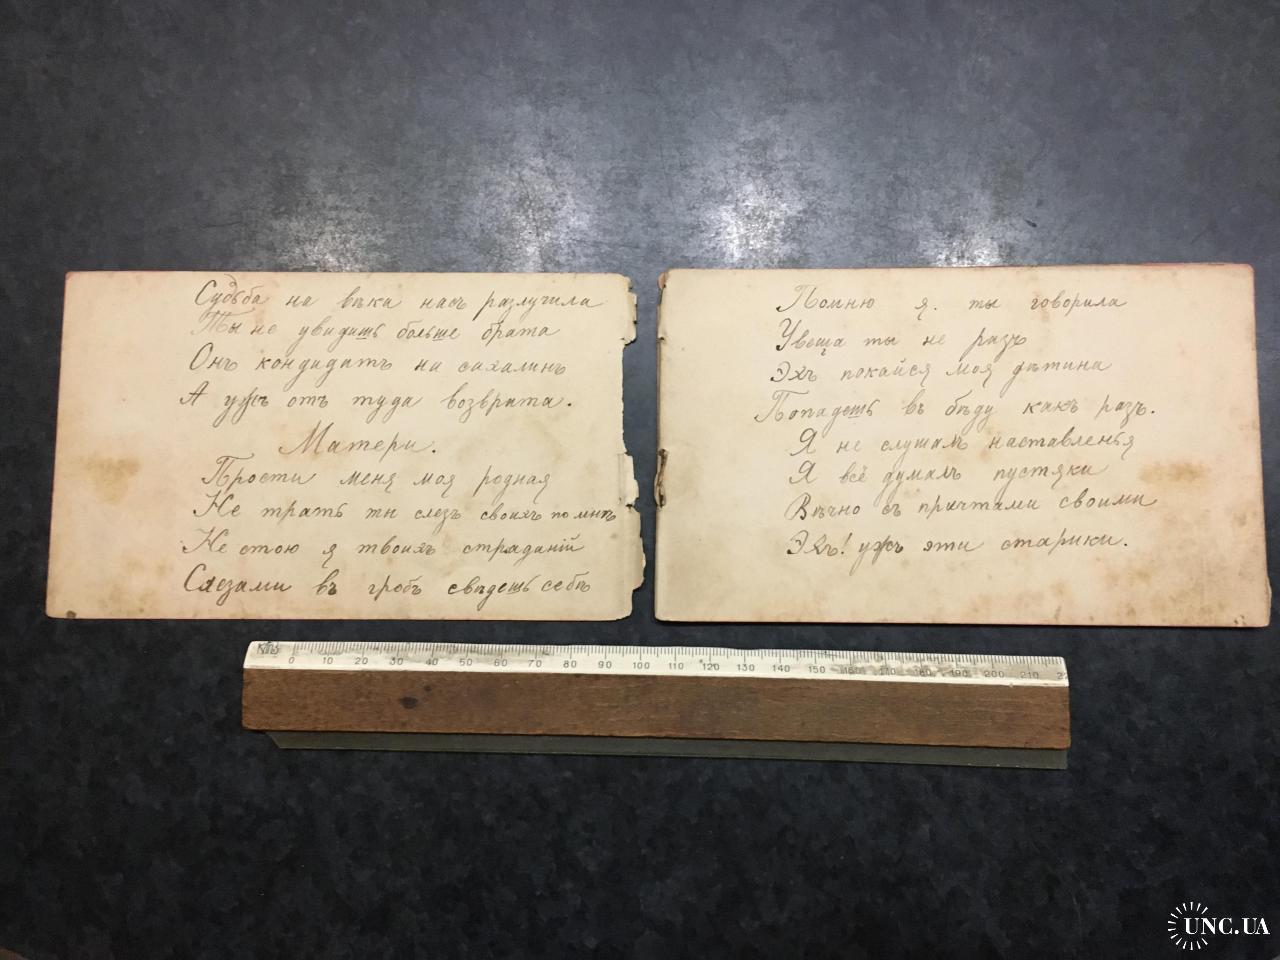 Судьба на вѣка насъ разлучила
Ты не увидишь больше брата
Онъ кондидатъ на сахалинъ
А ужъ отъ туда возврата.
Матери.
Прости меня моя родная
Не трать ты слезъ своихъ по мнѣ
Не стою я твоихъ страданій
Слезами въ гробъ сведешь себѣ
Помню я. ты говорила
Увеща ты не разъ
Эхъ покайся моя дѣтина
Попадешь въ бѣду какъ разъ.
Я не слушалъ наставленья
Я всё думалъ пустяки
Вѣчно съ притчами своими
Эхъ! ужъ эти старики.
0 10 20 30 40 50 60 70 80 90 100 110 120 130 140 150 160 170 180 190 200 210
UNC.UA